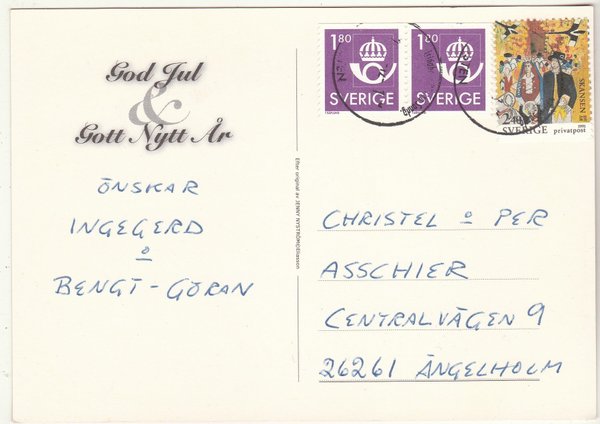 God Jul
&
Gott Nytt År
ÖNSKAR
INGEGERD
o
BENGT-GÖRAN
Efter original av JENNY NYSTRÖM/Eliasson
1.80
SVERIGE
1.80
SVERIGE
SKANSEN
SVERIGE privatpost
CHRISTEL o PER
ASSCHIER
CENTRALVÄGEN 9
26261 ÄNGELHOLM